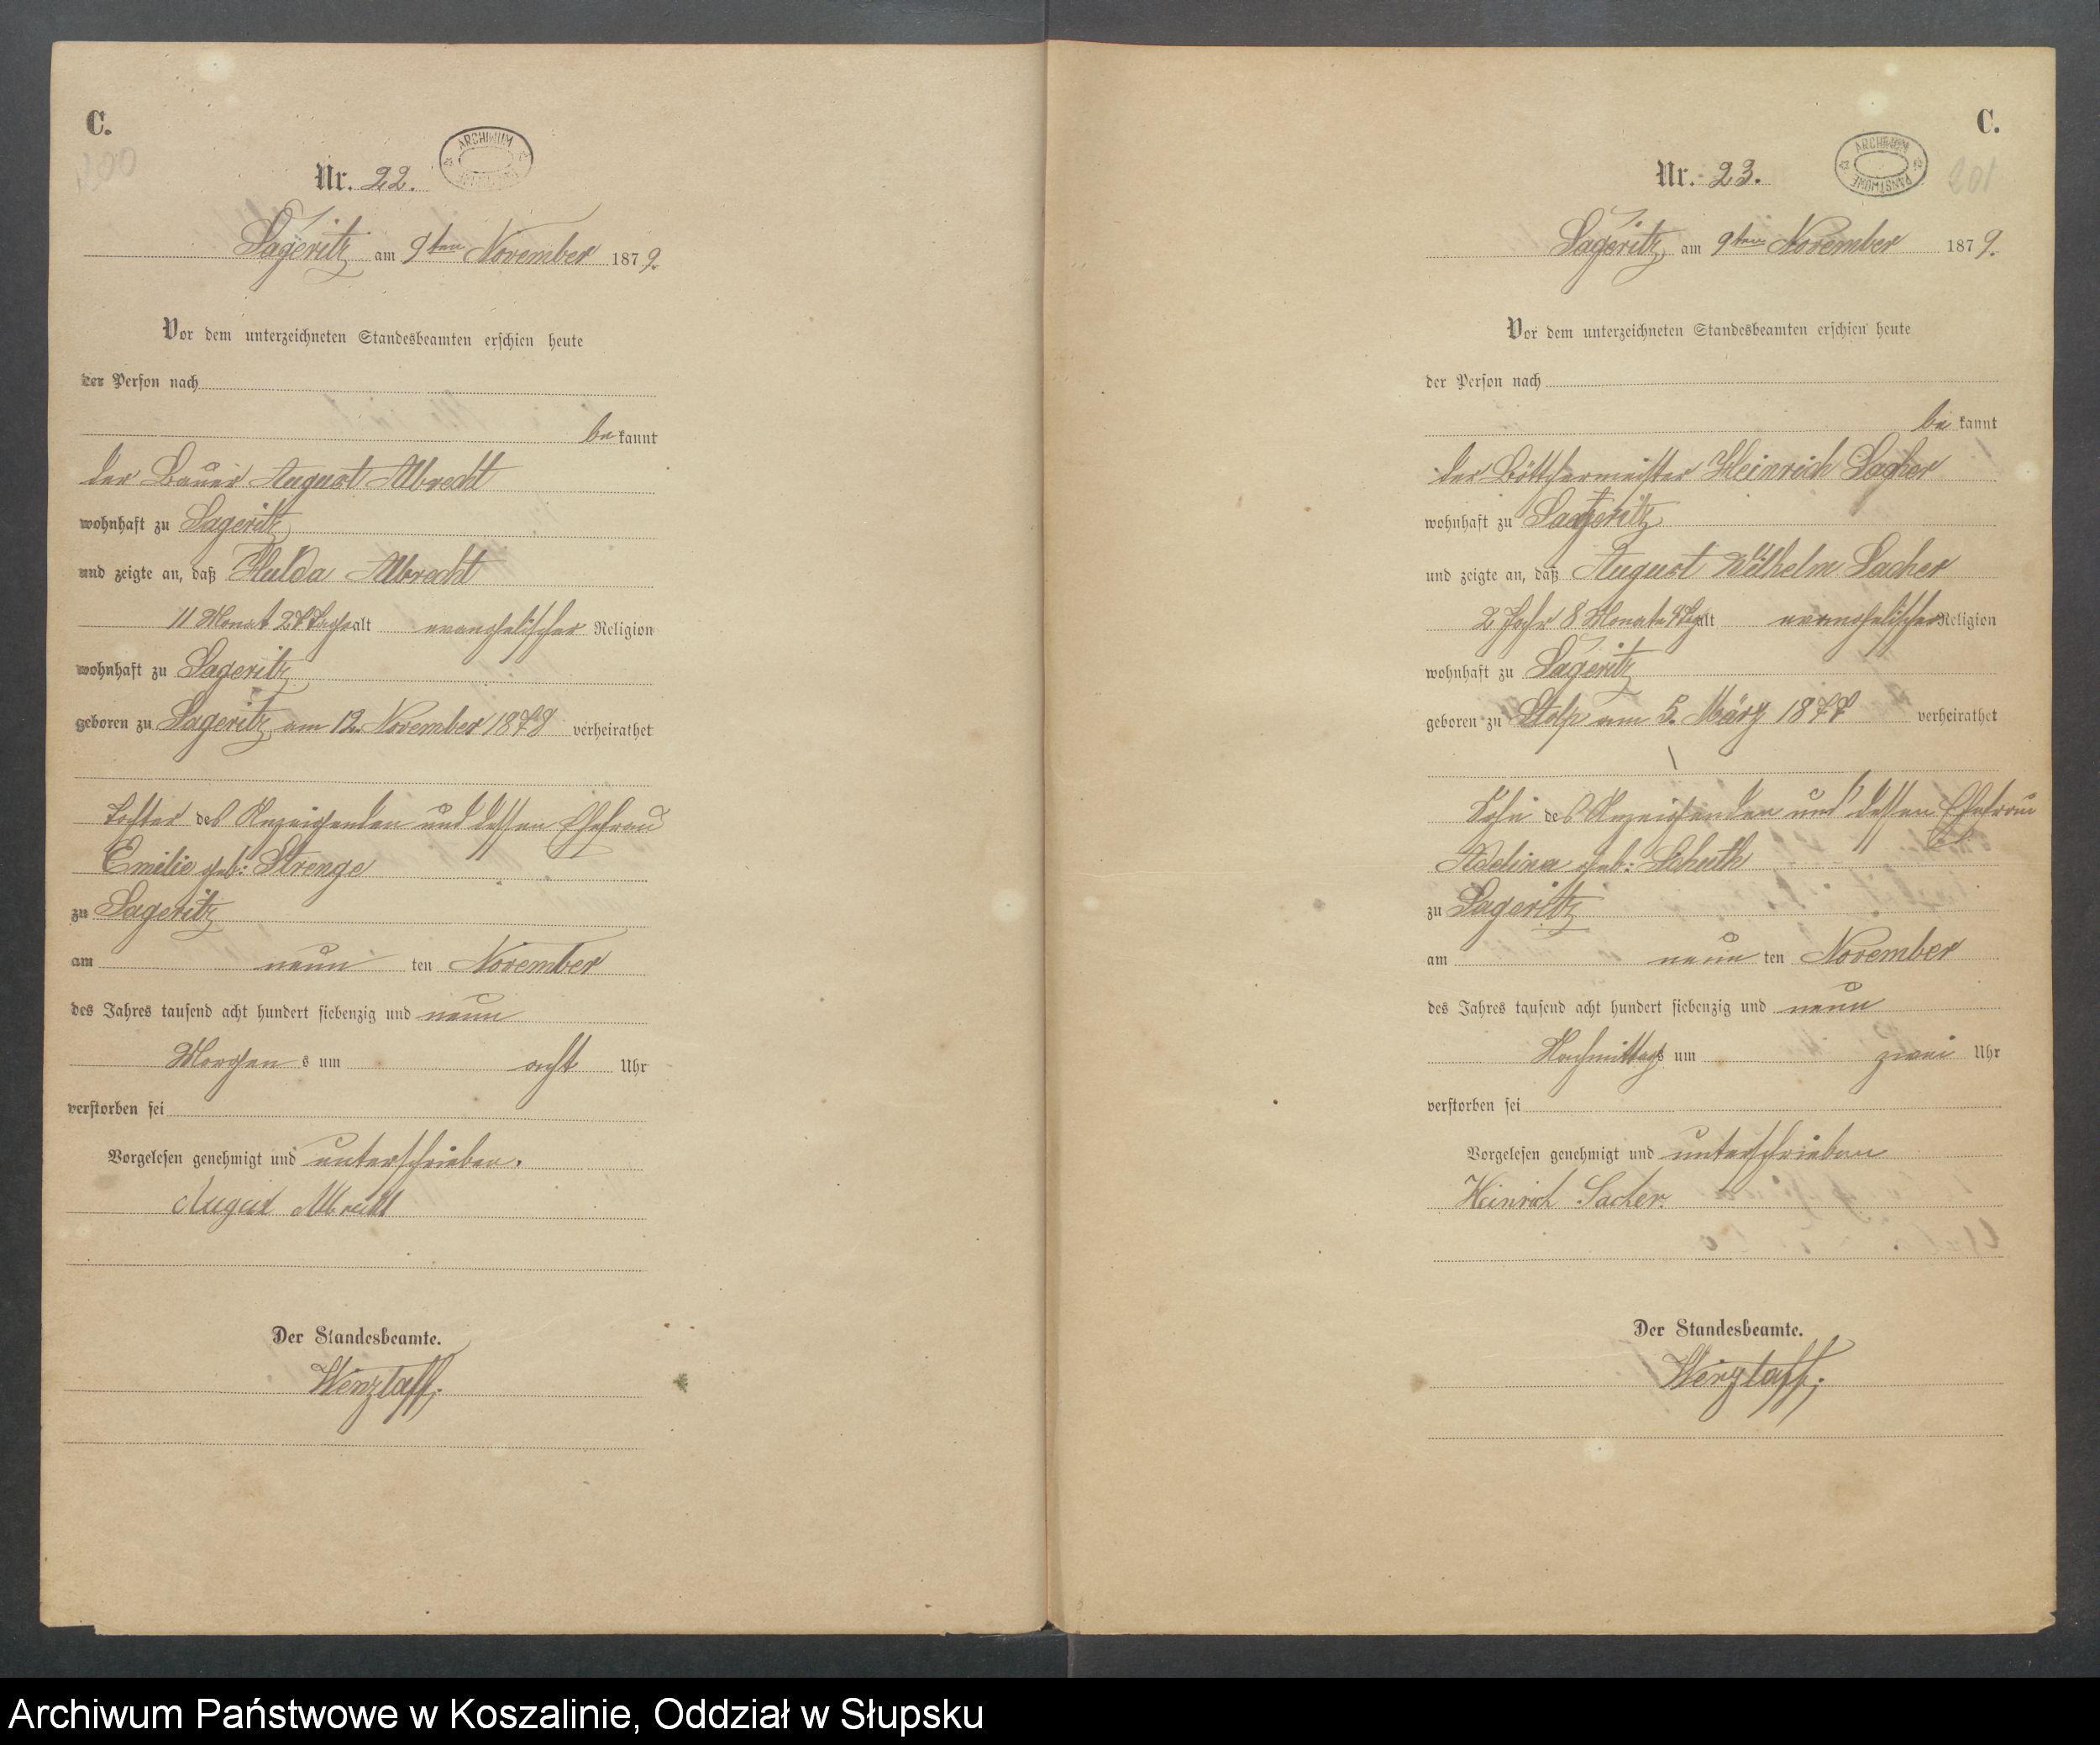 C.
200
Nr. 22.
ARCHIWUM
Sageritz am 9ten November 1879.
Vor dem unterzeichneten Standesbeamten erschien heute
der Person nach
be kannt
der Bauer August Albrecht
wohnhaft zu Sageritz
und zeigte an, daß Hulda Albrecht
11 Monat 27 Tage alt evangelischer Religion
wohnhaft zu Sageritz
geboren zu Sageritz am 12. November 1878 verheirathet
Tochter des Anzeigenden und dessen Ehefrau
Emilie geb: Strenge
zu Sageritz
am neun ten November
des Jahres tausend acht hundert siebenzig und neun
Morgen s um acht Uhr
verstorben sei
Vorgelesen genehmigt und unterschrieben.
August Albrecht
Der Standesbeamte.
Wenzlaff.
C.
201
Nr. 23.
ARCHIWUM PAŃSTWOWE
Sageritz am 9ten November 1879.
Vor dem unterzeichneten Standesbeamten erschien heute
der Person nach
be kannt
der Böttchermeister Heinrich Sacher
wohnhaft zu Sageritz
und zeigte an, daß August Wilhelm Sacher
2 Jahr 8 Monate Tag alt evangelischer Religion
wohnhaft zu Sageritz
geboren zu Stolp am 5. März 1877 verheirathet
Sohn des Anzeigenden und dessen Ehefrau
Adeline geb: Scheith
zu Sageritz
am neun ten November
des Jahres tausend acht hundert siebenzig und neun
Nachmittags um zwei Uhr
verstorben sei
Vorgelesen genehmigt und unterschrieben
Heinrich Sacher.
Der Standesbeamte.
Wenzlaff.
Archiwum Państwowe w Koszalinie, Oddział w Słupsku